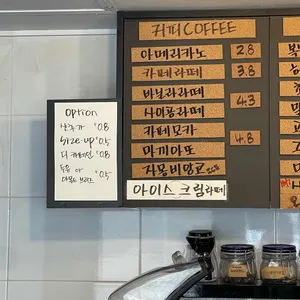 커피 COFFEE
아메리카노 2.8
카페라떼 3.8
바닐라라떼
사이공라떼 4.3
카페모카
마끼아또 4.8
자몽비앙코
아이스크림라떼
option
샷추가 +0.8
Size up +0.5
디카페인 +0.8
+0.5